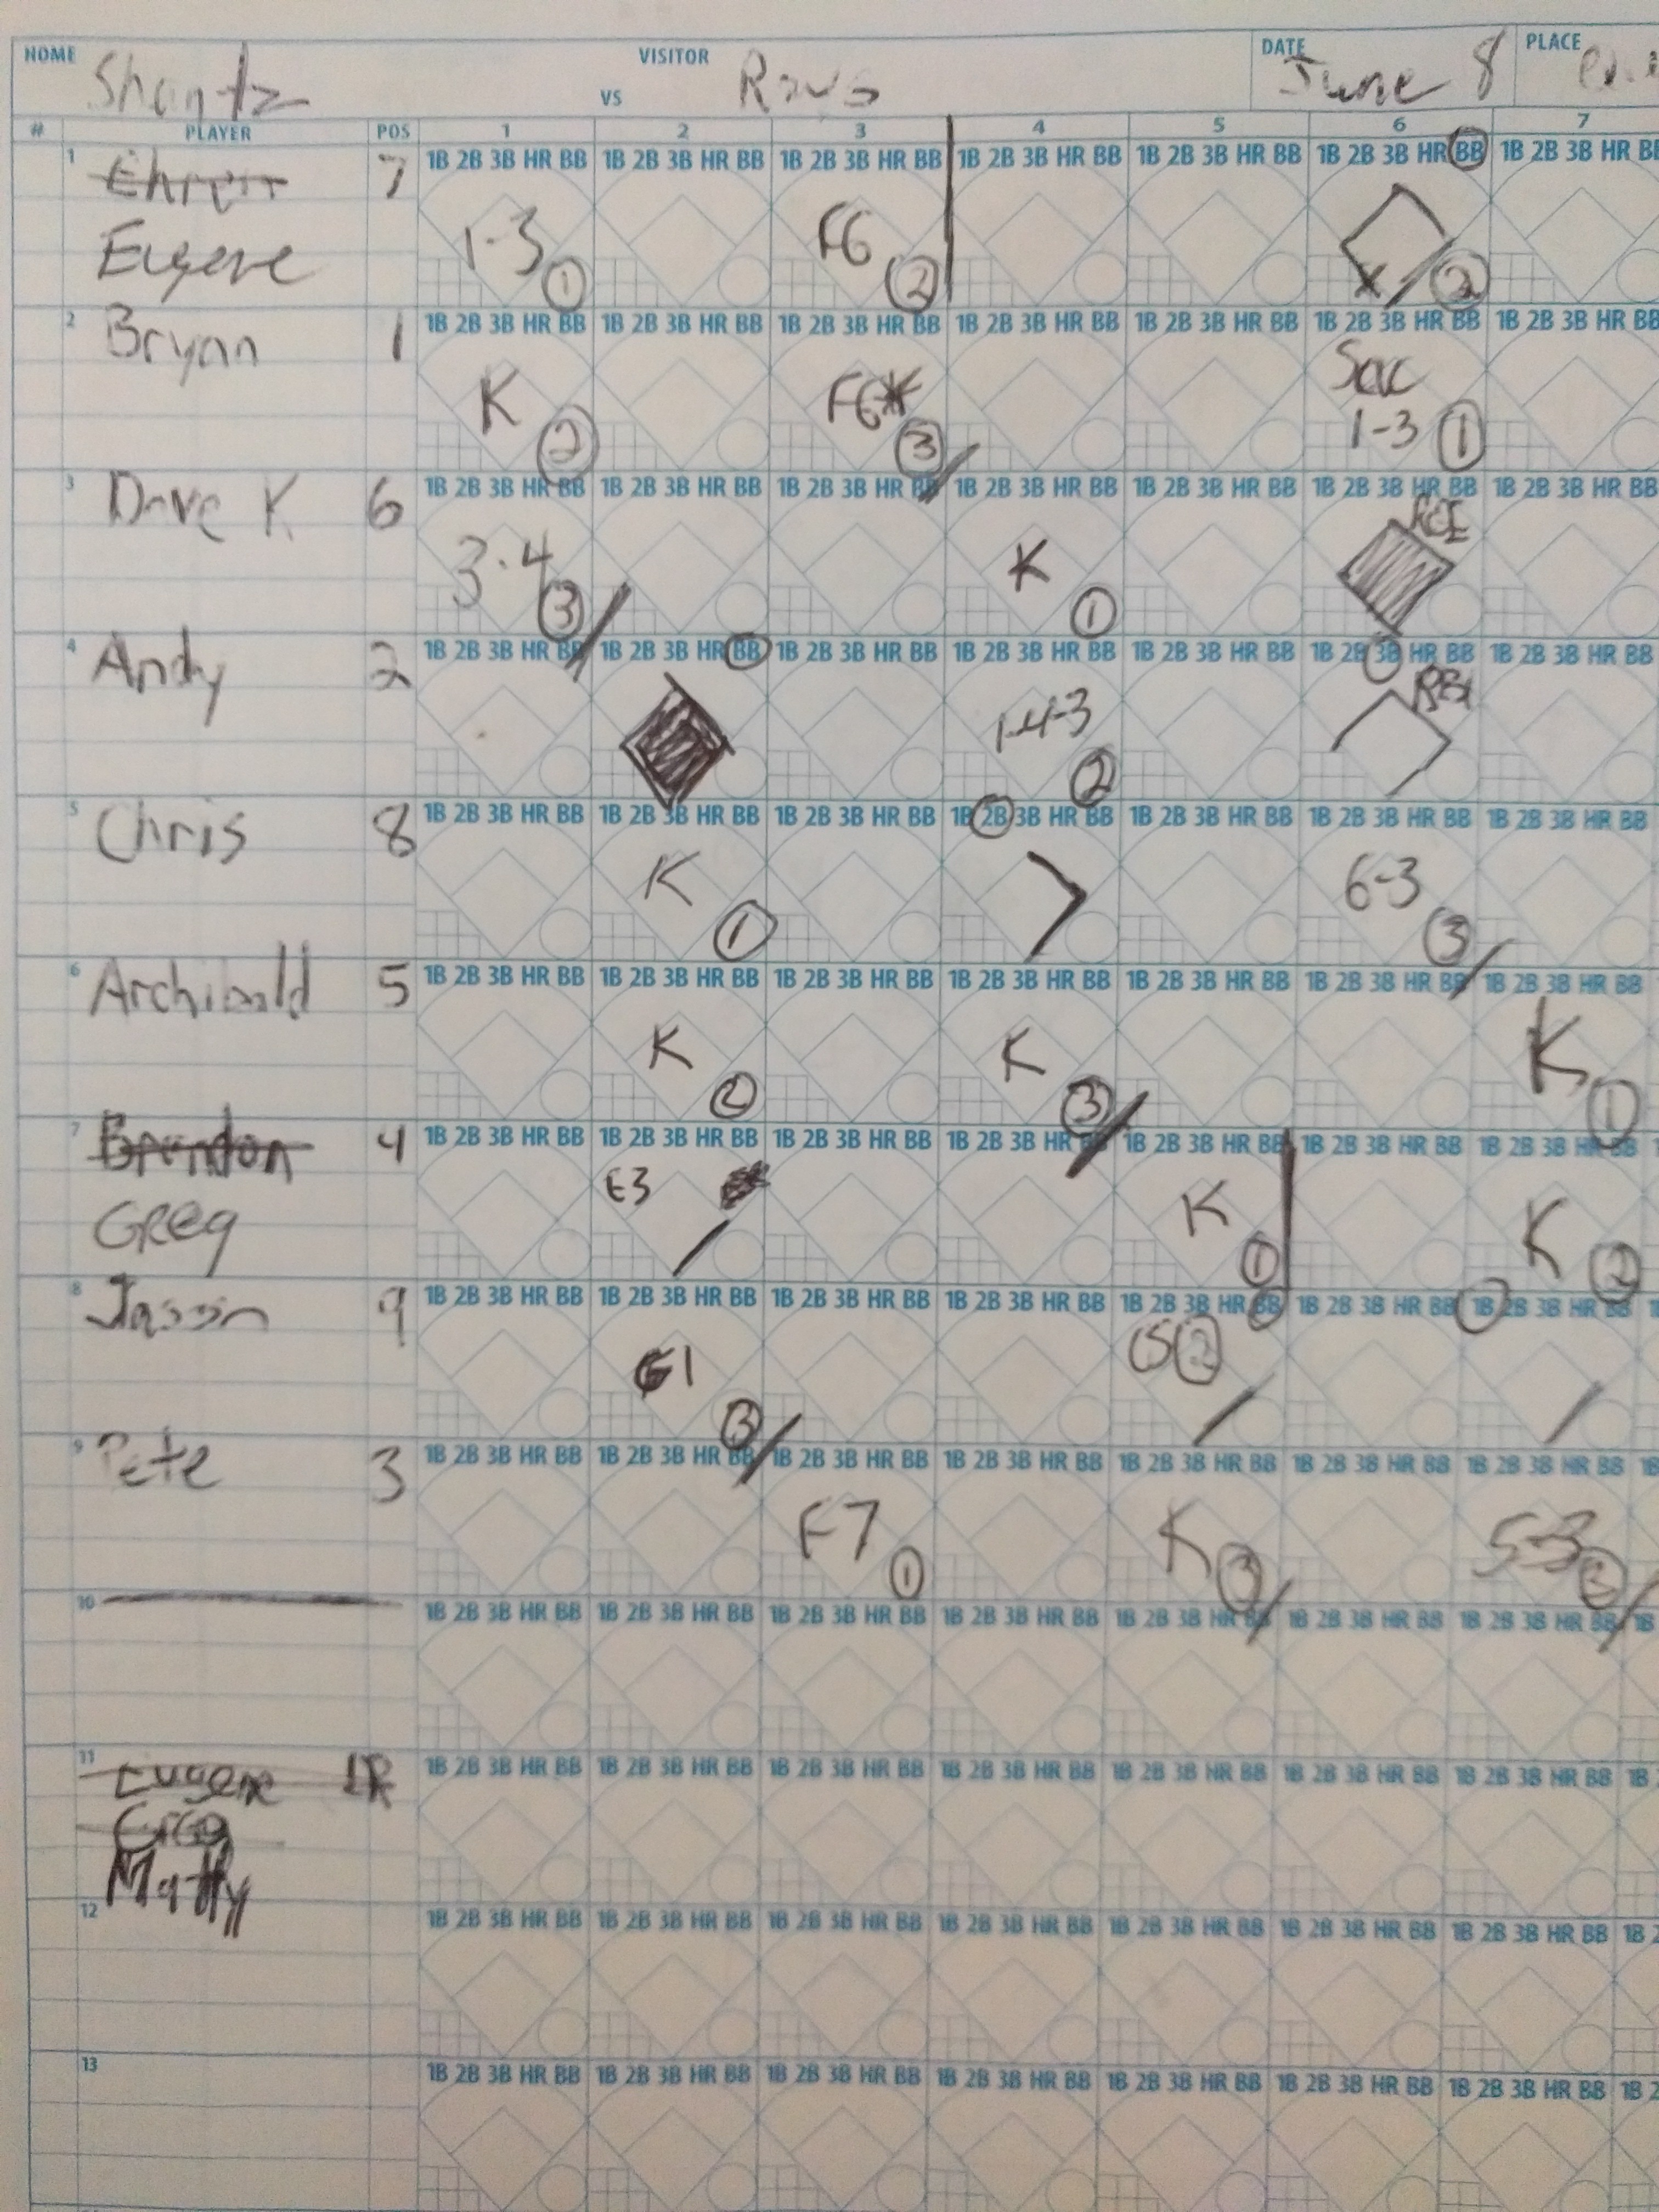 HOME Shantz VS VISITOR Rays DATE June 8 PLACE
# PLAYER POS 1 2 3 4 5 6 7
1 Ehren 7 1B 2B 3B HR BB 1B 2B 3B HR BB 1B 2B 3B HR BB 1B 2B 3B HR BB 1B 2B 3B HR BB 1B 2B 3B HR BB 1B 2B 3B HR BB
Eugene 1-3 1 F6 2 X 2
2 Bryan 1 1B 2B 3B HR BB 1B 2B 3B HR BB 1B 2B 3B HR BB 1B 2B 3B HR BB 1B 2B 3B HR BB 1B 2B 3B HR BB 1B 2B 3B HR BB
K 2 F6* 3 Sac 1-3 1
3 Dave K 6 1B 2B 3B HR BB 1B 2B 3B HR BB 1B 2B 3B HR BB 1B 2B 3B HR BB 1B 2B 3B HR BB 1B 2B 3B HR BB 1B 2B 3B HR BB
3-4 3 K 1
4 Andy 2 1B 2B 3B HR BB 1B 2B 3B HR BB 1B 2B 3B HR BB 1B 2B 3B HR BB 1B 2B 3B HR BB 1B 2B 3B HR BB 1B 2B 3B HR BB
1-4-3 2 RBI
5 Chris 8 1B 2B 3B HR BB 1B 2B 3B HR BB 1B 2B 3B HR BB 1B 2B 3B HR BB 1B 2B 3B HR BB 1B 2B 3B HR BB 1B 2B 3B HR BB
K 1 6-3 3
6 Archibald 5 1B 2B 3B HR BB 1B 2B 3B HR BB 1B 2B 3B HR BB 1B 2B 3B HR BB 1B 2B 3B HR BB 1B 2B 3B HR BB 1B 2B 3B HR BB
K 2 K 3 K 1
7 Brandon 4 1B 2B 3B HR BB 1B 2B 3B HR BB 1B 2B 3B HR BB 1B 2B 3B HR BB 1B 2B 3B HR BB 1B 2B 3B HR BB 1B 2B 3B HR BB
Greg E3 K 1 K 2
8 Jason 9 1B 2B 3B HR BB 1B 2B 3B HR BB 1B 2B 3B HR BB 1B 2B 3B HR BB 1B 2B 3B HR BB 1B 2B 3B HR BB 1B 2B 3B HR BB
G1 3 CS 2
9 Pete 3 1B 2B 3B HR BB 1B 2B 3B HR BB 1B 2B 3B HR BB 1B 2B 3B HR BB 1B 2B 3B HR BB 1B 2B 3B HR BB 1B 2B 3B HR BB
F7 1 K 3 5-3 3
10 1B 2B 3B HR BB 1B 2B 3B HR BB 1B 2B 3B HR BB 1B 2B 3B HR BB 1B 2B 3B HR BB 1B 2B 3B HR BB 1B 2B 3B HR BB 1B
11 Eugene LR 1B 2B 3B HR BB 1B 2B 3B HR BB 1B 2B 3B HR BB 1B 2B 3B HR BB 1B 2B 3B HR BB 1B 2B 3B HR BB 1B 2B 3B HR BB 1B
Greg
Matty
12 1B 2B 3B HR BB 1B 2B 3B HR BB 1B 2B 3B HR BB 1B 2B 3B HR BB 1B 2B 3B HR BB 1B 2B 3B HR BB 1B 2B 3B HR BB 1B 2
13 1B 2B 3B HR BB 1B 2B 3B HR BB 1B 2B 3B HR BB 1B 2B 3B HR BB 1B 2B 3B HR BB 1B 2B 3B HR BB 1B 2B 3B HR BB 1B 2